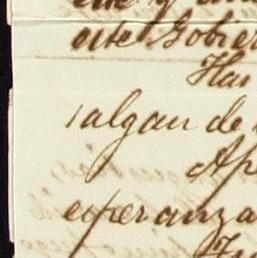 este Gobier
Han
salgan de
Ap
esperanza